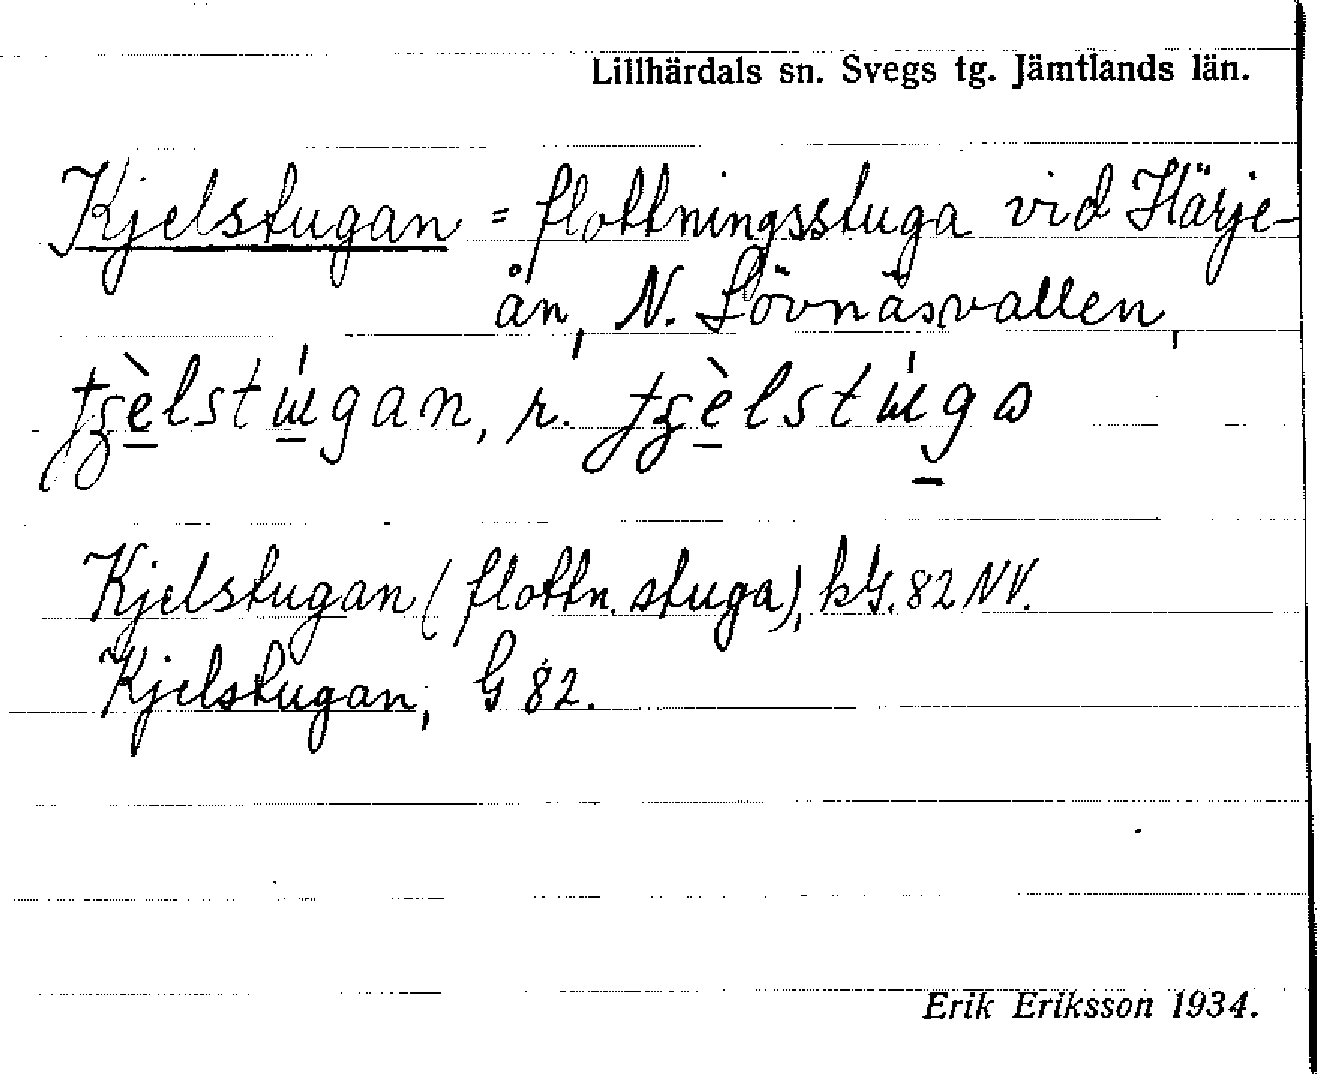 Lillhärdals sn. Svegs tg. Jämtlands län.
Kjelstugan = flottningsstuga vid Härje-
ån, N. Lövnäsvallen,
r.
Kjelstugan (flottn. stuga), kG. 82 NV.
Kjelstugan, G 82.
Erik Eriksson 1934.